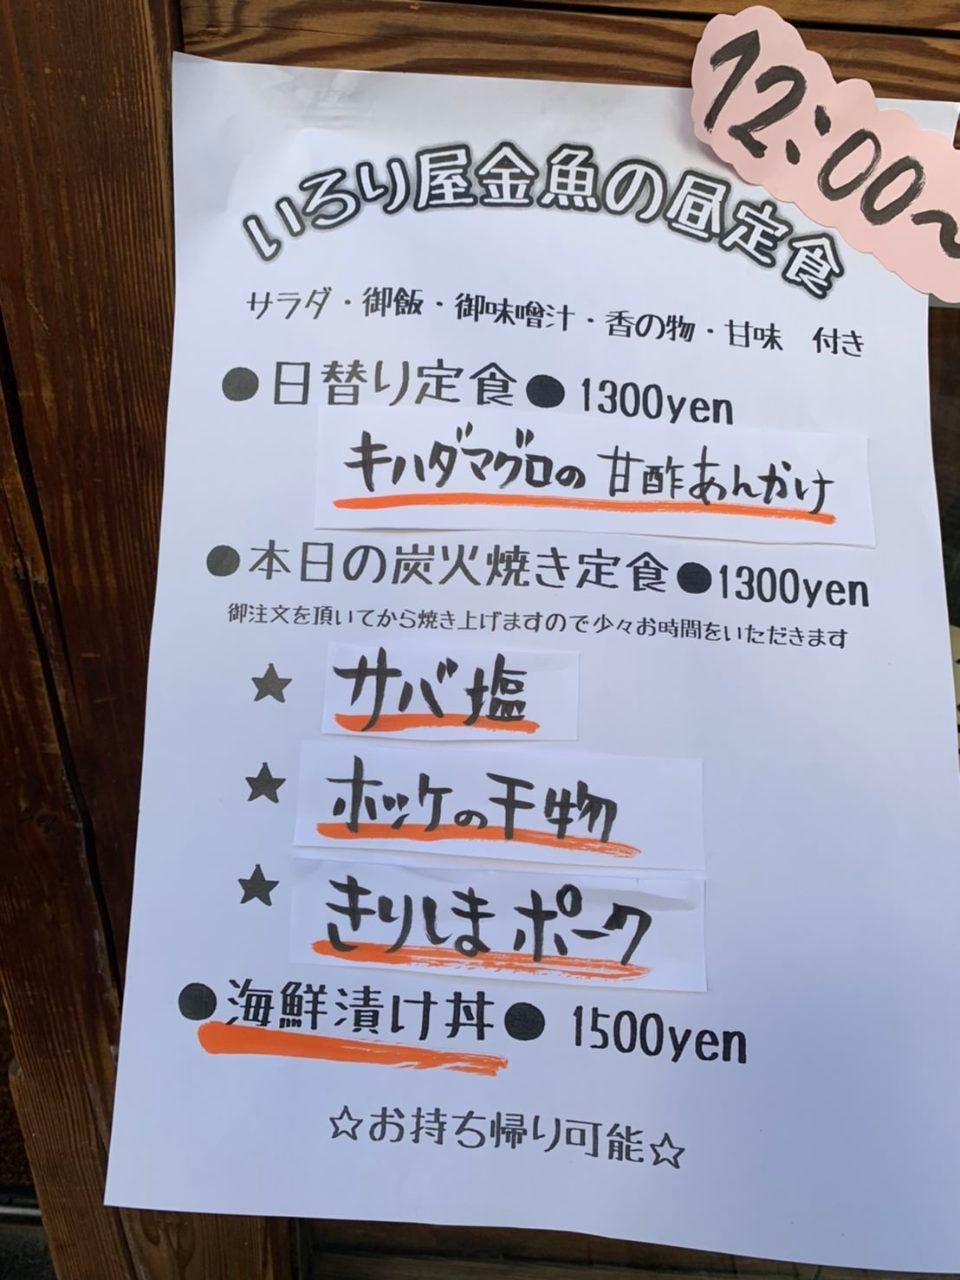 12:00〜
いろり屋金魚の昼定食
サラダ・御飯・御味噌汁・香の物・甘味　付き
●日替り定食● 1300yen
キハダマグロの 甘酢あんかけ
●本日の炭火焼き定食●1300yen
御注文を頂いてから焼き上げますので少々お時間をいただきます
★ サバ塩
★ ホッケの干物
★ きりしまポーク
●海鮮漬け丼● 1500yen
☆お持ち帰り可能☆